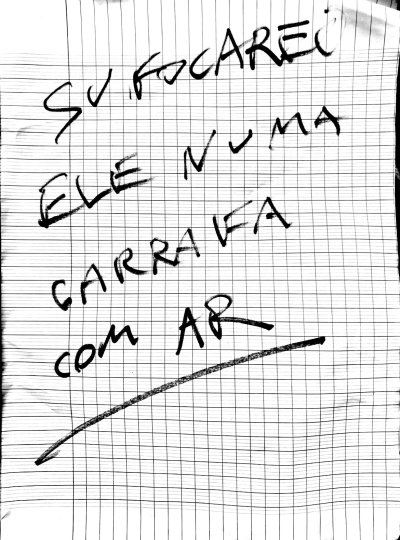 SUFOCAREI
ELE NUMA
GARRAFA
COM AR